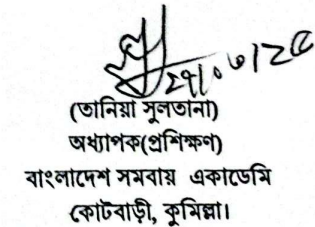 ২৭/০৬/২৫
(তানিয়া সুলতানা)
অধ্যাপক(প্রশিক্ষণ)
বাংলাদেশ সমবায় একাডেমি
কোটবাড়ী, কুমিল্লা।